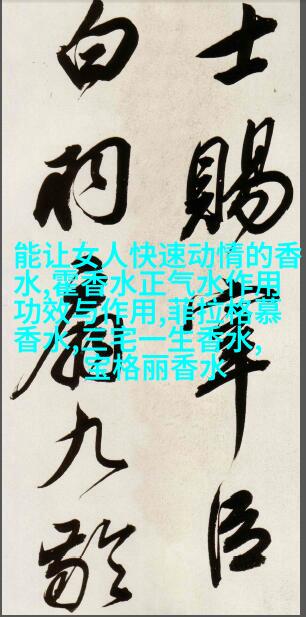 士賜宰臣
白羽扇九齡
能让女人快速动情的香
水,霍香水正气水作用
功效与作用,菲拉格慕
香水,三宅一生香水,
宝格丽香水